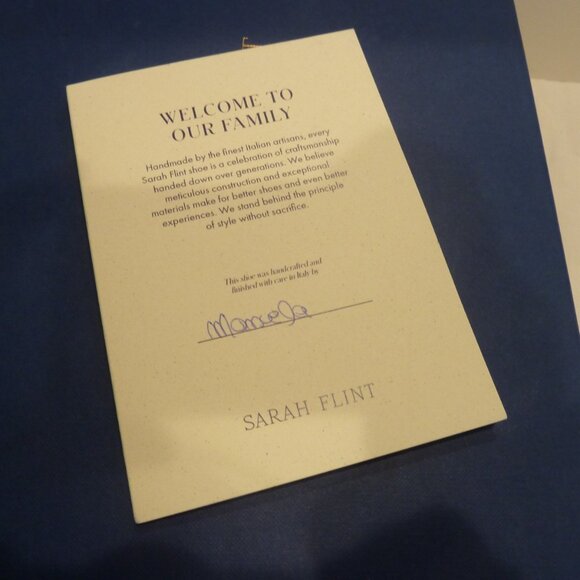 WELCOME TO
OUR FAMILY
Handmade by the finest Italian artisans, every
Sarah Flint shoe is a celebration of craftsmanship
handed down over generations. We believe
meticulous construction and exceptional
materials make for better shoes and even better
experiences. We stand behind the principle
of style without sacrifice.
This shoe was handcrafted and
finished with care in Italy by
Manuela
SARAH FLINT